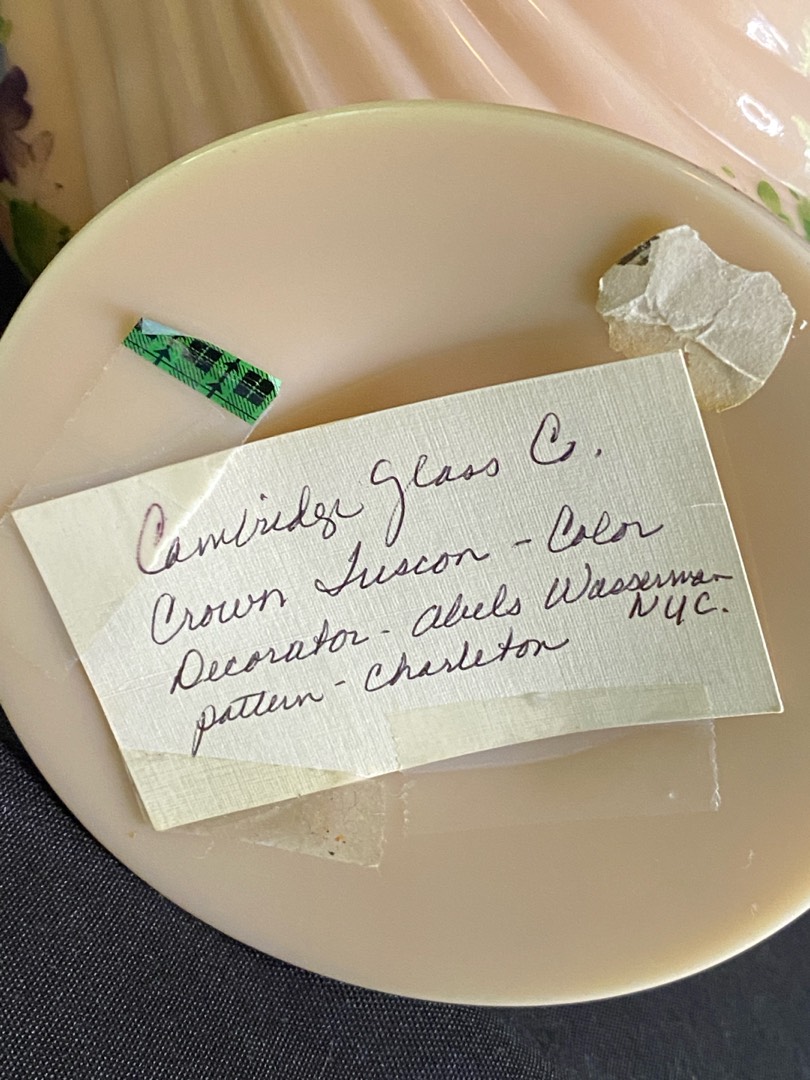 Cambridge Glass C.
Crown Tuscon - Color
Decorator - Abels Wasserman
NYC.
pattern - Charleton